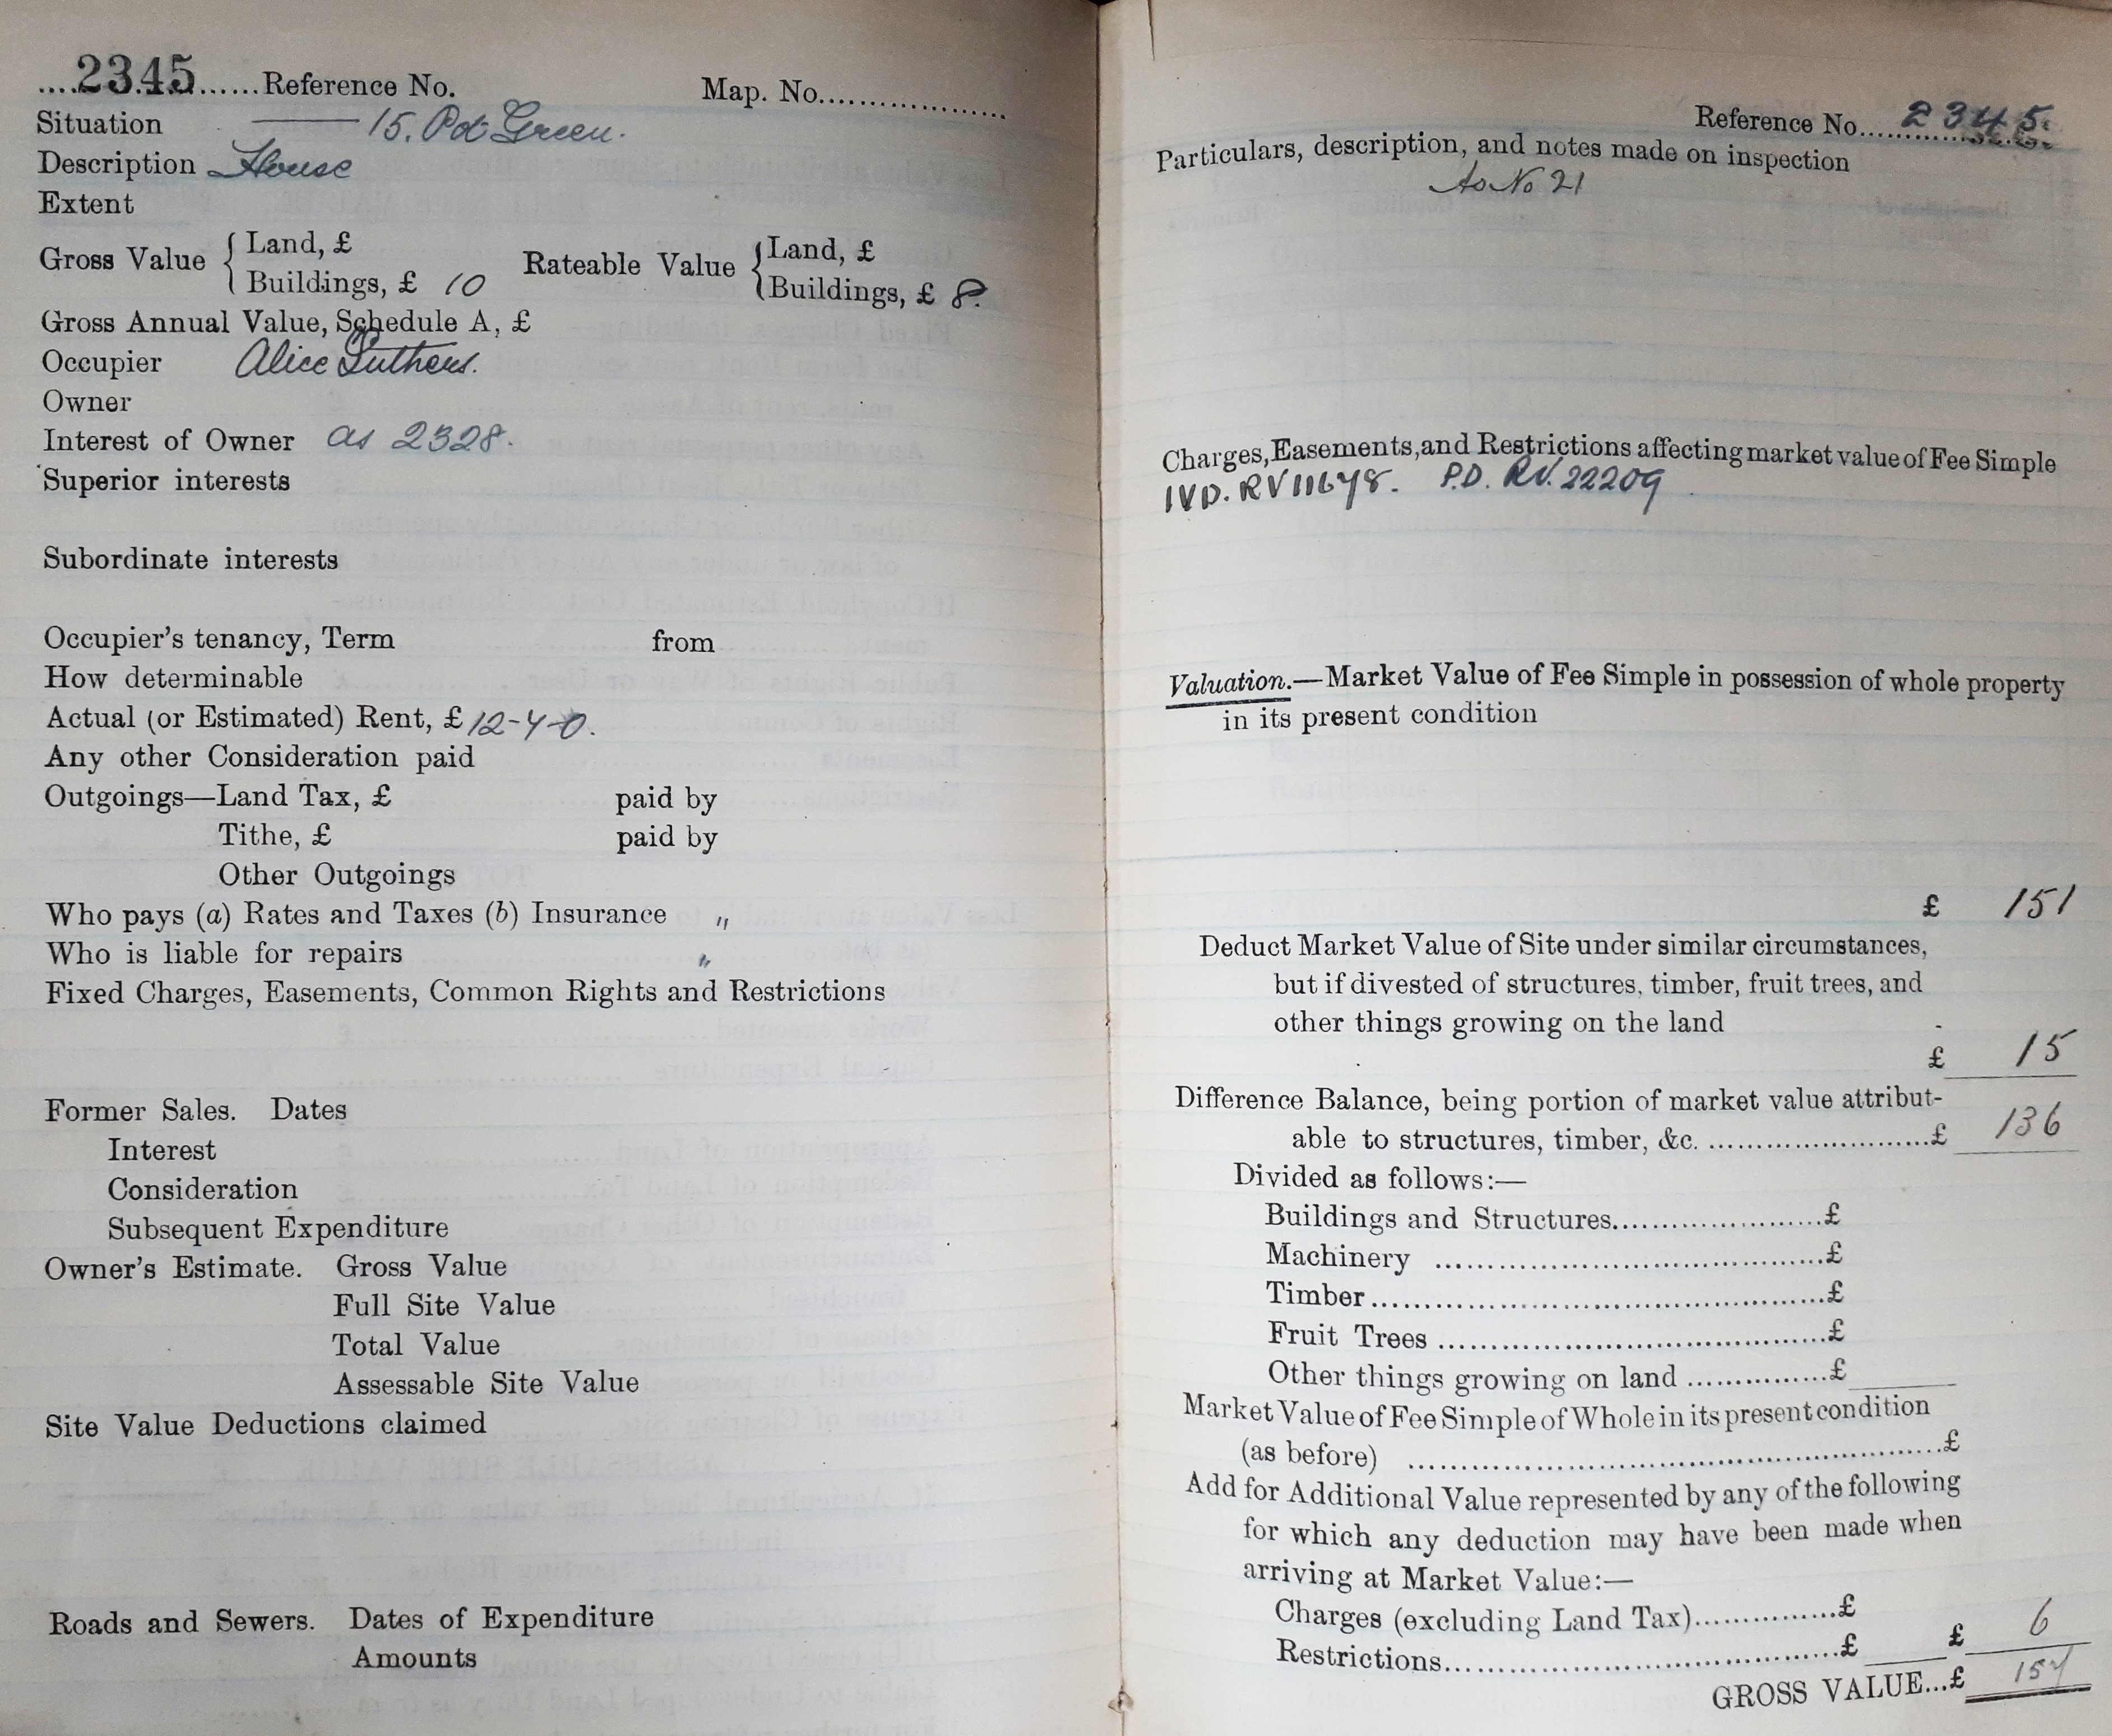 ....2345......Reference No. Map. No....................
Situation 15. Pot Green.
Description House
Extent
Gross Value { Land, £ Rateable Value { Land, £
Buildings, £ 10 Buildings, £ 8.
Gross Annual Value, Schedule A, £
Occupier Alice
Owner
Interest of Owner as 2328.
Superior interests
Subordinate interests
Occupier's tenancy, Term from
How determinable
Actual (or Estimated) Rent, £ 12-4-0.
Any other Consideration paid
Outgoings—Land Tax, £ paid by
Tithe, £ paid by
Other Outgoings
Who pays (a) Rates and Taxes (b) Insurance "
Who is liable for repairs "
Fixed Charges, Easements, Common Rights and Restrictions
Former Sales. Dates
Interest
Consideration
Subsequent Expenditure
Owner's Estimate. Gross Value
Full Site Value
Total Value
Assessable Site Value
Site Value Deductions claimed
Roads and Sewers. Dates of Expenditure
Amounts
Reference No....2345.
Particulars, description, and notes made on inspection
As No 21
Charges, Easements, and Restrictions affecting market value of Fee Simple
IVD. RV 11678. P.D. RV. 22209
Valuation.—Market Value of Fee Simple in possession of whole property
in its present condition
£ 151
Deduct Market Value of Site under similar circumstances,
but if divested of structures, timber, fruit trees, and
other things growing on the land
£ 15
Difference Balance, being portion of market value attribut-
able to structures, timber, &c. ........................£ 136
Divided as follows:—
Buildings and Structures.......................£
Machinery ..........................................£
Timber.................................................£
Fruit Trees ..........................................£
Other things growing on land ...............£
Market Value of Fee Simple of Whole in its present condition
(as before) ..........................................................£
Add for Additional Value represented by any of the following
for which any deduction may have been made when
arriving at Market Value:—
Charges (excluding Land Tax)...............£
Restrictions..........................................£ £ 6
GROSS VALUE...£ 157